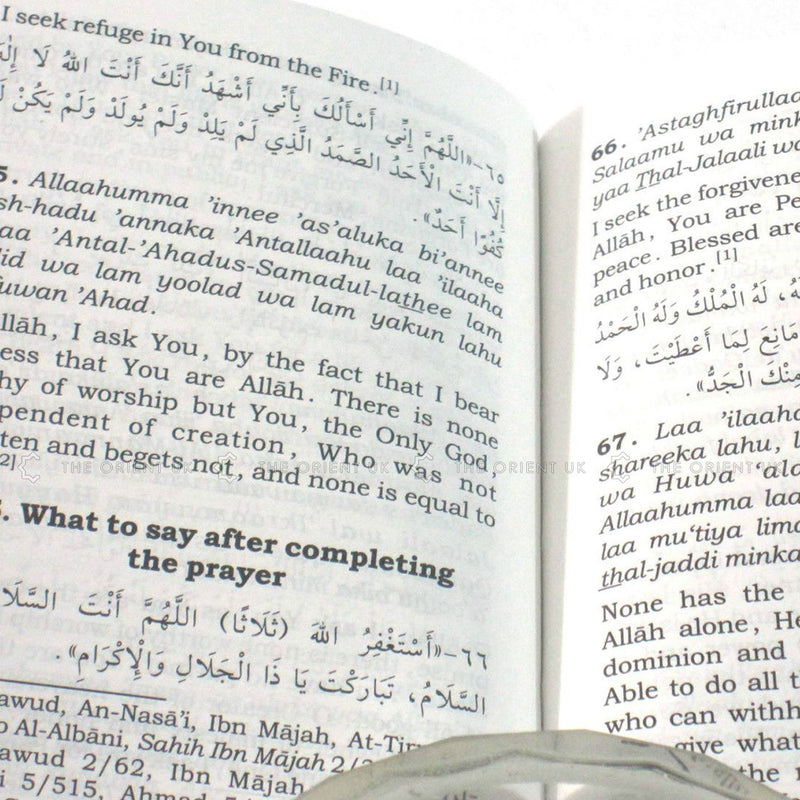 I seek refuge in You from the Fire.[1]
٦٥-«اللَّهُمَّ إِنِّي أَسْأَلُكَ بِأَنِّي أَشْهَدُ أَنَّكَ أَنْتَ اللَّهُ لَا إِلَهَ
إِلَّا أَنْتَ الْأَحَدُ الصَّمَدُ الَّذِي لَمْ يَلِدْ وَلَمْ يُولَدْ وَلَمْ يَكُنْ
كُفُوًا أَحَدٌ».
5. Allaahumma 'innee 'as'aluka bi'annee
sh-hadu 'annaka 'Antallaahu laa 'ilaaha
aa 'Antal-'Ahadus-Samadul-lathee lam
lid wa lam yoolad wa lam yakun lahu
fuwan 'Ahad.
llāh, I ask You, by the fact that I bear
ess that You are Allāh. There is none
hy of worship but You, the Only God,
pendent of creation, Who was not
ten and begets not, and none is equal to
2]
. What to say after completing
the prayer
٦٦-«أَسْتَغْفِرُ اللَّهَ (ثَلَاثًا) اللَّهُمَّ أَنْتَ السَّلَا
السَّلَامُ، تَبَارَكْتَ يَا ذَا الْجَلَالِ وَالْإِكْرَامِ».
awud, An-Nasā'i, Ibn Mājah, At-Tir
o Al-Albāni, Sahih Ibn Mājah 2/3
awud 2/62, Ibn Mājah
i 5/515, Ahmad
66. 'Astaghfirullaa
Salaamu wa mink
yaa Thal-Jalaali wa
I seek the forgivene
Allāh, You are Pe
peace. Blessed are
and honor.[1]
لَهُ الْمُلْكُ وَلَهُ الْحَمْدُ
مَانِعَ لِمَا أَعْطَيْتَ، وَلَا
مِنْكَ الْجَدُّ».
67. Laa 'ilaaha
shareeka lahu, l
wa Huwa 'ala
Allaahumma laa
laa mu'tiya lima
thal-jaddi minka
None has the
Allāh alone, He
dominion and
Able to do all t
who can withh
give what
the
THE ORIENT UK THE ORIENT UK THE ORIENT UK THE ORIENT UK